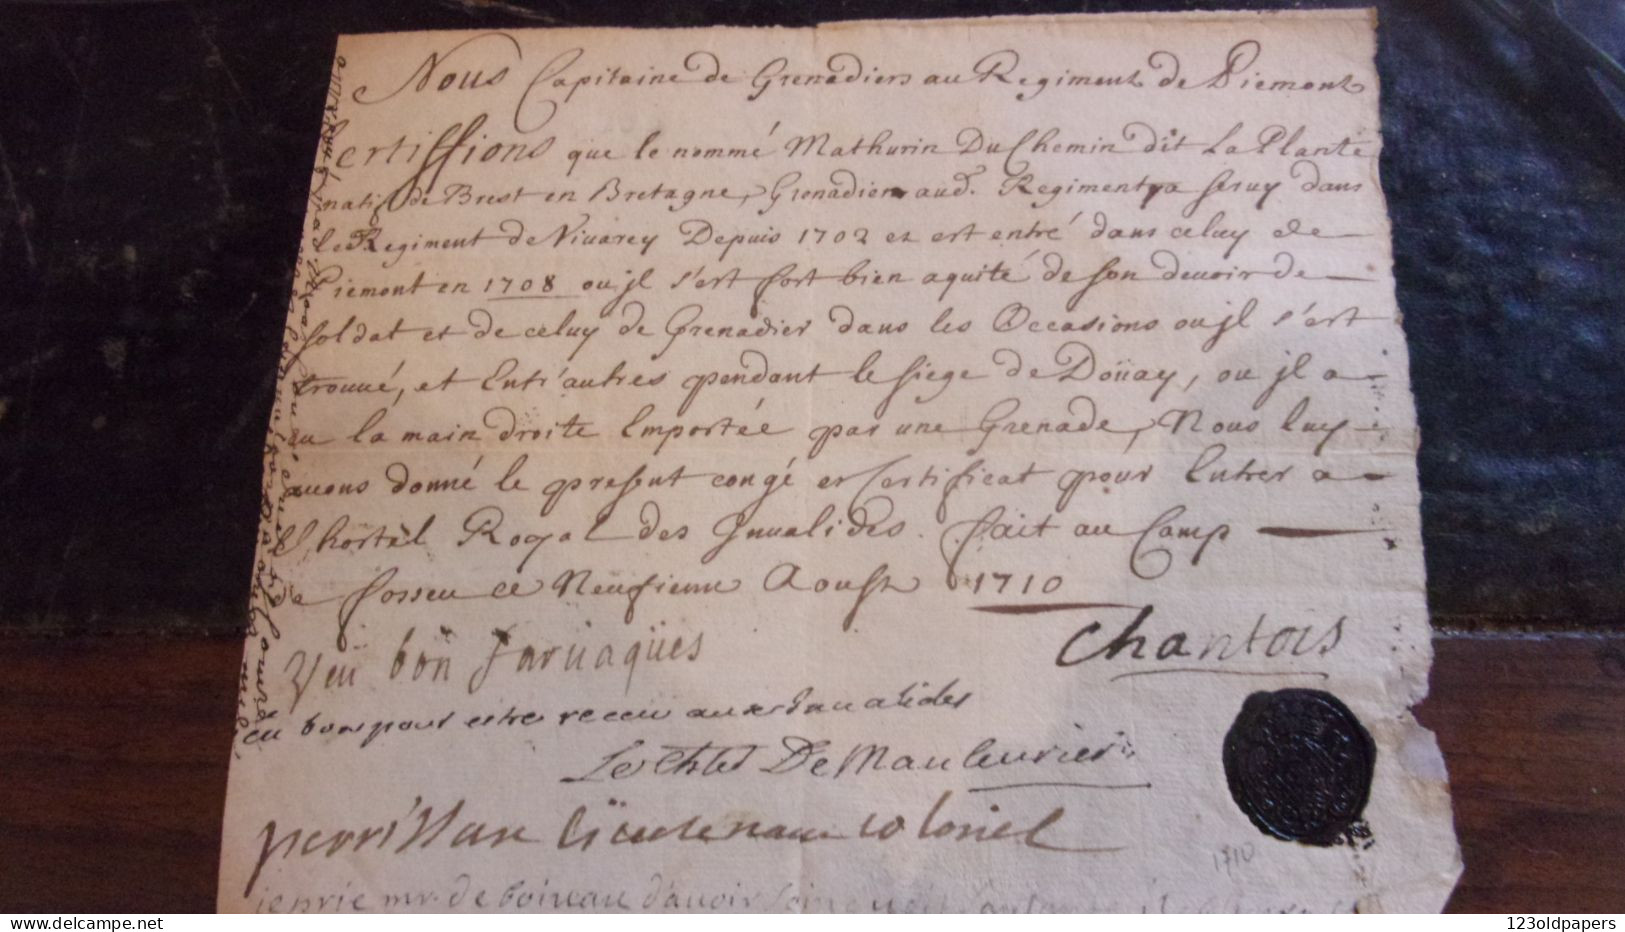 Nous Capitaine de Grenadiers au Regiment de Piemont
Certiffions que le nommé Mathurin DuChemin dit La Plante
natif de Brest en Bretagne, Grenadier aud. Regiment, a seruy dans
le Regiment de Viuarey Depuis 1702 et est entré dans celuy de
Piemont en 1708 ou jl s'est fort bien aquité de son deuoir de
soldat et de celuy de Grenadier dans les Occasions ou jl s'est
trouué, et Entr'autres pendant le siege de Doüay, ou jl a
eu la main droite Emportée par une Grenade, Nous luy
auons donné le present congé et Certificat pour Entrer a
L'hostel Royal des Jnualides. fait au Camp
de fosseu ce Neufieme Aoust 1710
Veü bon Jaruaqües
Chantois
veu bon pour estre receu aux Jnualides
Le De Mauleurier
lieutenant colonel
1710
je prie mr. de boiveau d'avoir soin
123oldpapers